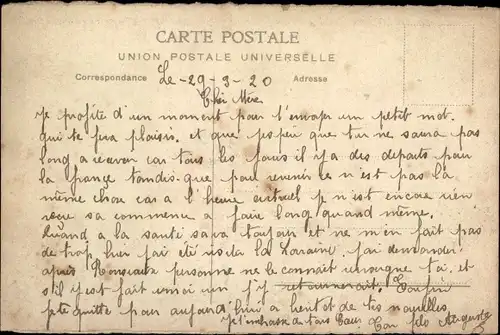 CARTE POSTALE
UNION POSTALE UNIVERSELLE
Correspondance Le - 29 - 3 - 20 Adresse
Chèr Mère
Je profite d'un moment pour t'envoyer un petit mot.
qui te fera plaisir. et que j'espeu que tu ne saura pas
long a recevoir car tous les jours il y a des departs pour
la france tandis que pour revenir ce n'est pas la
même chose car a l'heure actuel je n'est encore rien
recu sa commence a faire long quand même.
Quand a la santé sava toujour et ne m'en fait pas
de trop hier jai été visiter la Lorraine jai demander
après Monsieur personne ne le connait
s'il est fait moi un j'y retournerais Enfin
je te quitte pour aujourd'hui a bientot de tes nouvelles
Je t'embrasse a tous Ton fils Auguste